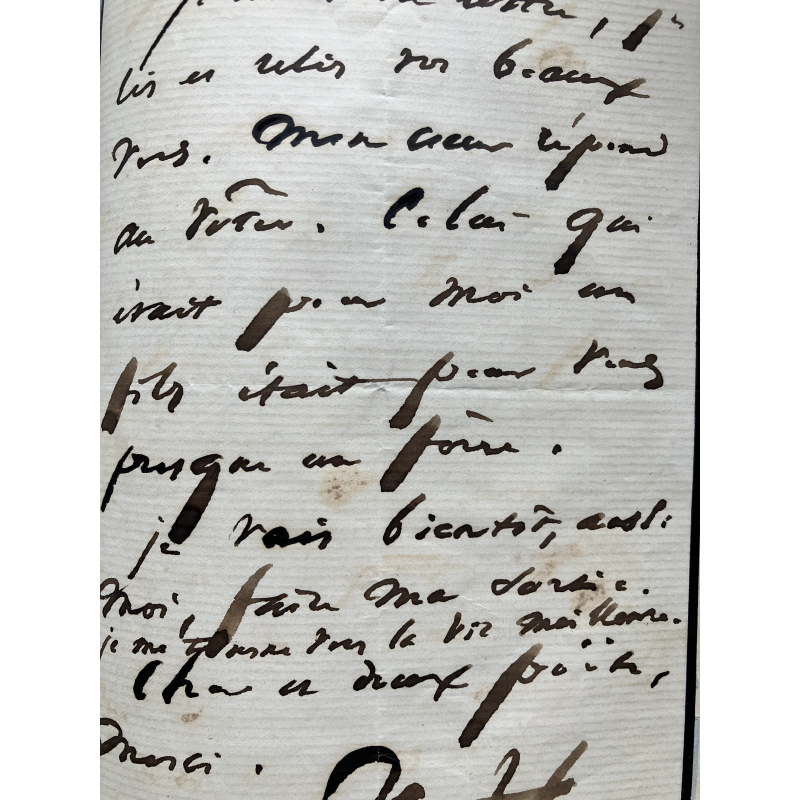 lis et relis vos beaux
vers. Mon cœur répond
au vôtre. Celui qui
était pour moi un
fils était pour vous
presque un frère.
je vais bientôt, aussi
moi, faire ma sortie.
je me tourne vers la vie meilleure.
Cher et doux poëte,
merci.